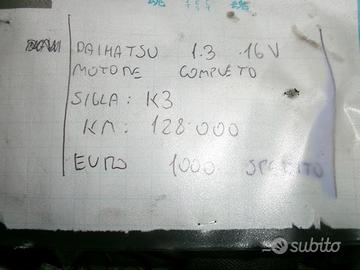 DAIHATSU 1.3 .16V
MOTORE COMPLETO
SIGLA: K3
KM: 128.000
EURO 1000 SPEDITO
subito